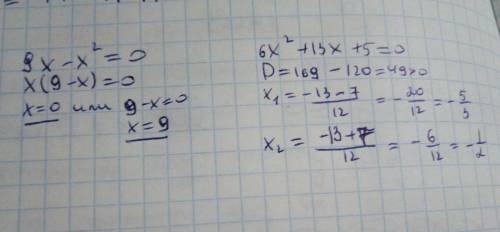 9x - x² = 0
x(9-x) = 0
x=0 или 9-x=0
x=9
6x² + 13x + 5 = 0
D = 169 - 120 = 49>0
x₁ = -13-7/12 = -20/12 = -5/3
x₂ = -13+7/12 = -6/12 = -1/2